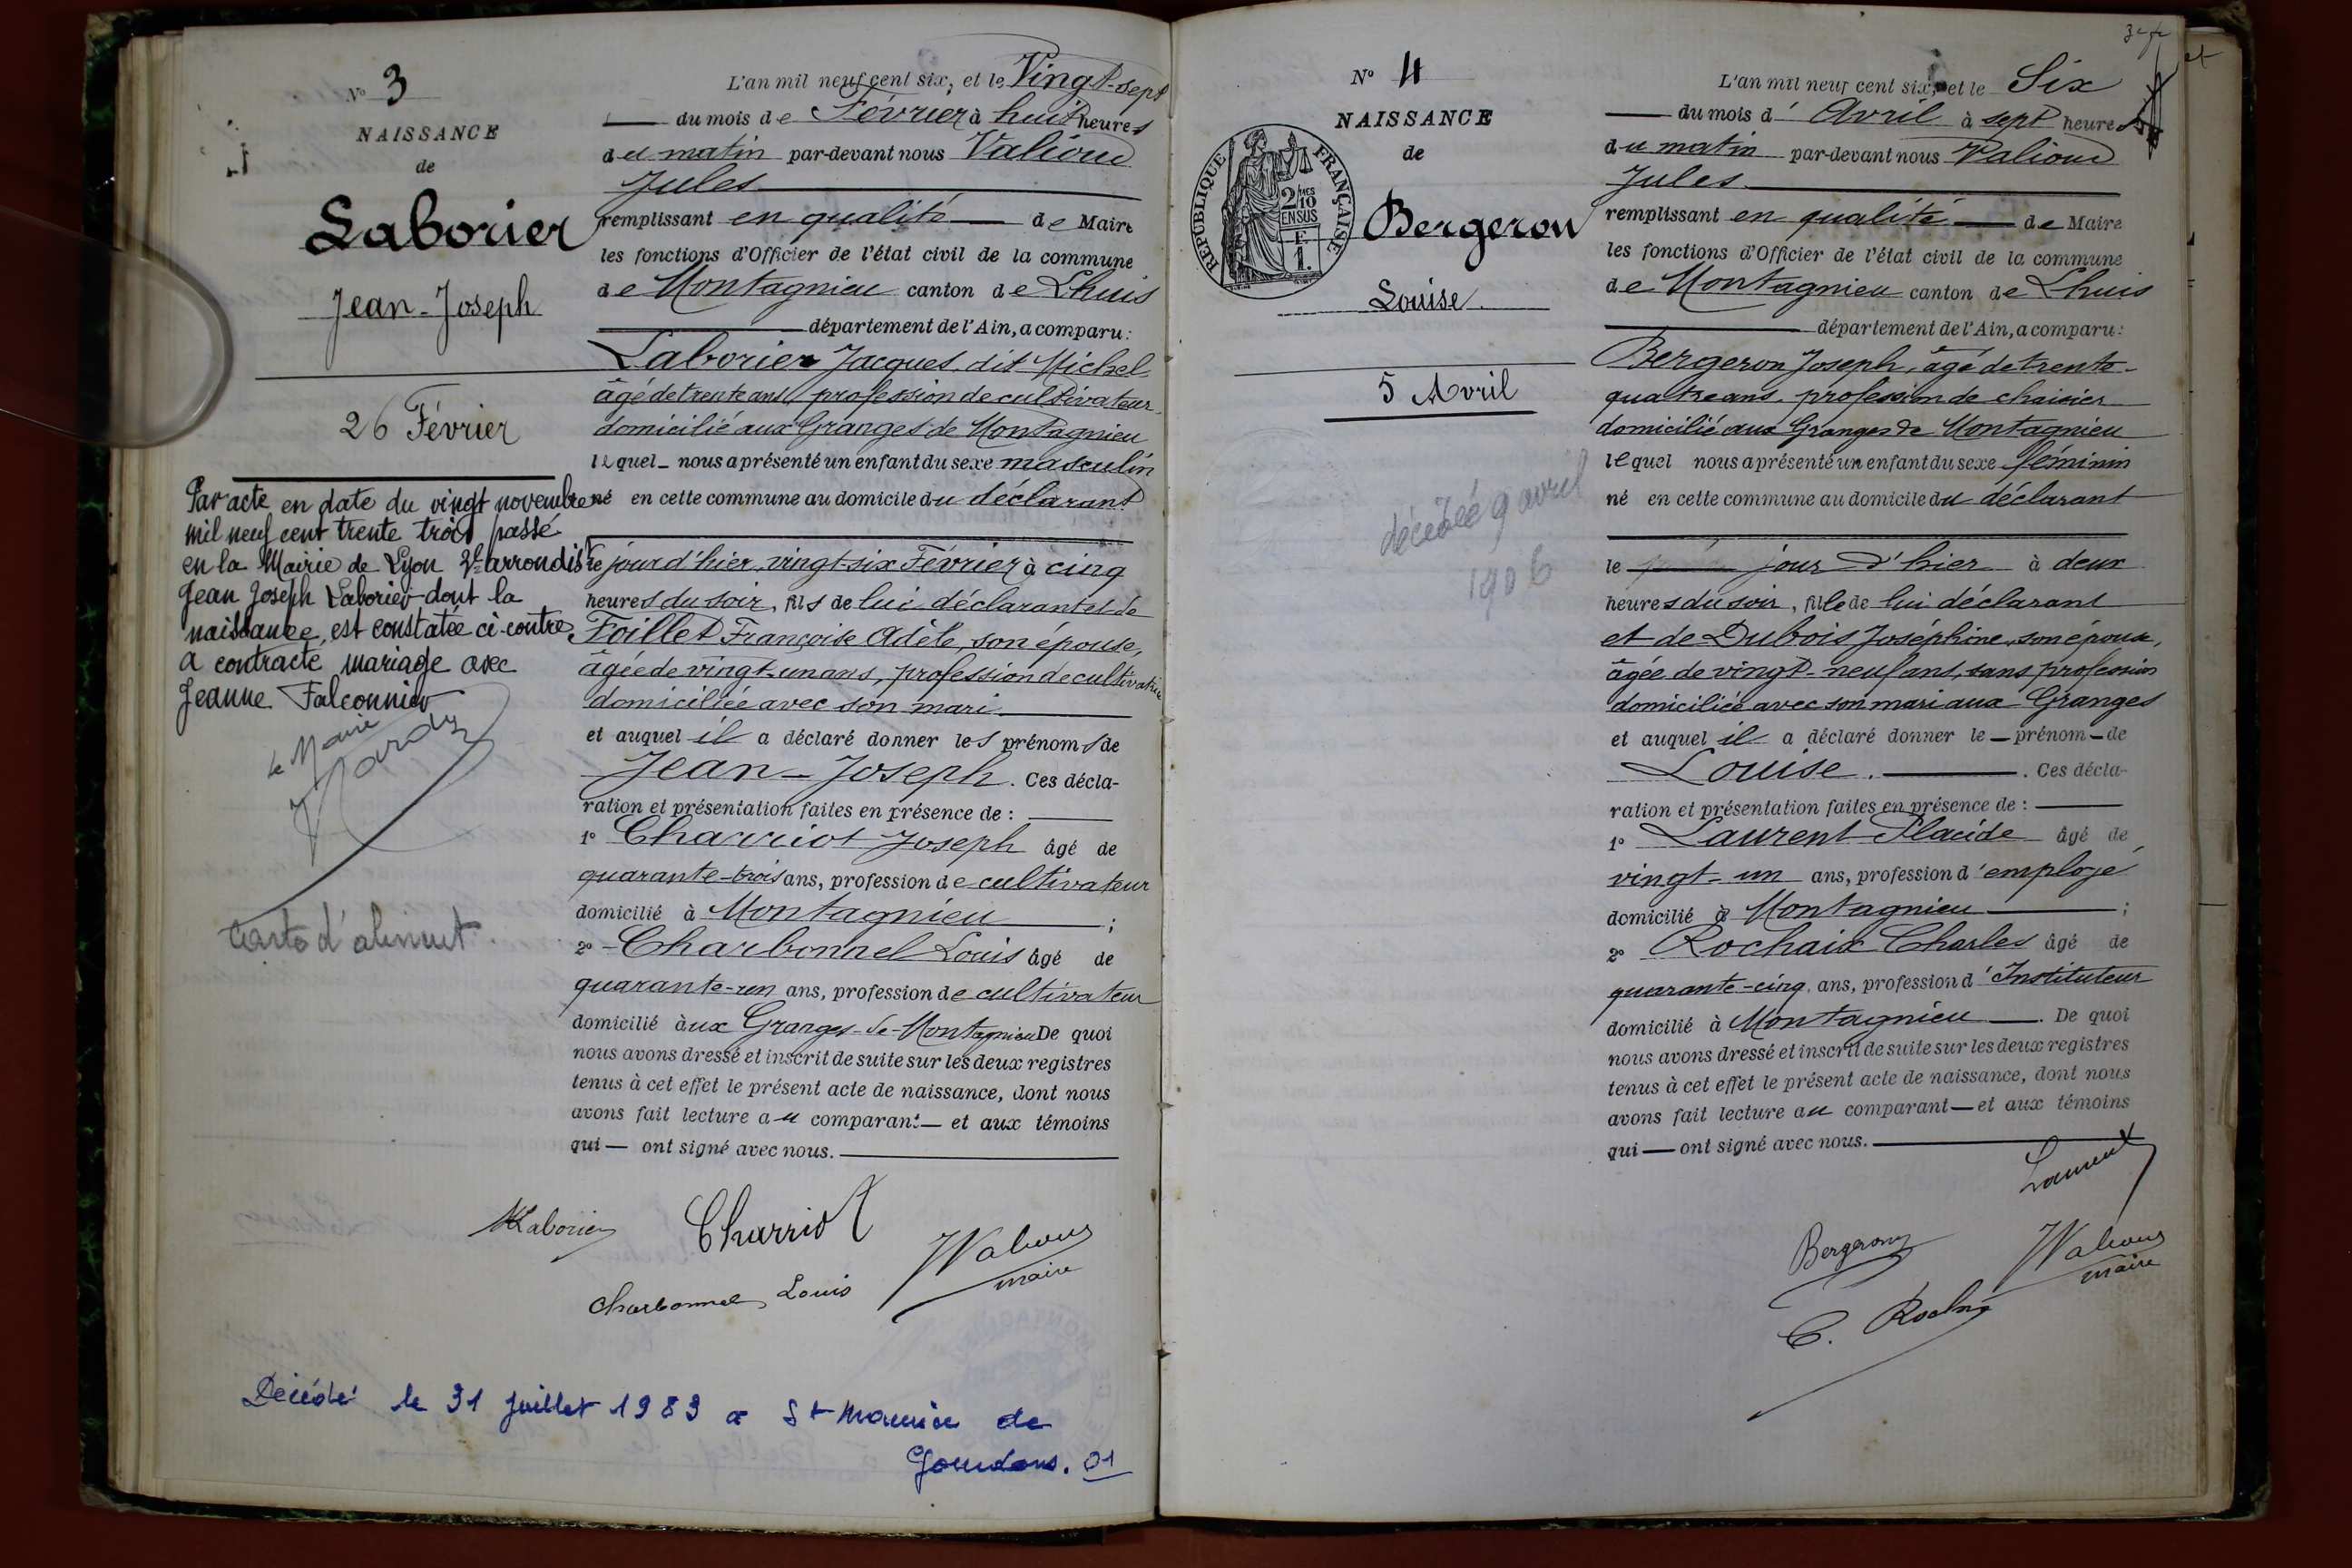 N° 3
NAISSANCE
de
Laborier
Jean-Joseph
26 Février
Par acte en date du vingt novembre
mil neuf cent trente trois passé
en la Mairie de Lyon 2e arrondist
Jean Joseph Laborier dont la
naissance, est constatée ci-contre
a contracté mariage avec
Jeanne Falconnier
le Maire
Carte d'aliment.
L'an mil neuf cent six, et le Vingt-sept
du mois de Février à huit heures
du matin par-devant nous Valioud
Jules
remplissant en qualité de Maire
les fonctions d'Officier de l'état civil de la commune
de Montagnieu canton de Lhuis
département de l'Ain, a comparu:
Laborier Jacques, dit Michel
âgé de trente ans, profession de cultivateur
domicilié aux Granges de Montagnieu
lequel nous a présenté un enfant du sexe masculin
né en cette commune au domicile du déclarant
le jour d'hier, vingt-six Février à cinq
heures du soir, fils de lui déclarant et de
Foillet Françoise Adèle, son épouse,
âgée de vingt-un ans, profession de cultivatrice
domiciliée avec son mari
et auquel il a déclaré donner les prénoms de
Jean-Joseph. Ces décla-
ration et présentation faites en présence de :
1° Charriot Joseph âgé de
quarante-trois ans, profession de cultivateur
domicilié à Montagnieu ;
2° Charbonnel Louis âgé de
quarante-un ans, profession de cultivateur
domicilié àux Granges-de-Montagnieu De quoi
nous avons dressé et inscrit de suite sur les deux registres
tenus à cet effet le présent acte de naissance, dont nous
avons fait lecture au comparant — et aux témoins
qui — ont signé avec nous.
MLaborier Charriot
JValioud
maire
Charbonnel Louis
Décédé le 31 Juillet 1983 à St Maurice de
Gourdans. 01
N° 4
NAISSANCE
de
RÉPUBLIQUE FRANÇAISE
2/10MES
EN SUS
F.
1.
Bergeron
Louise.
5 Avril
décédée 9 avril
1906
L'an mil neuf cent six, et le Six
du mois d'Avril à sept heures
du matin par-devant nous Valioud
Jules
remplissant en qualité de Maire
les fonctions d'Officier de l'état civil de la commune
de Montagnieu canton de Lhuis
département de l'Ain, a comparu:
Bergeron Joseph, âgé de trente-
quatre ans, profession de chaisier
domicilié aux Granges de Montagnieu
lequel nous a présenté un enfant du sexe féminin
né en cette commune au domicile du déclarant
le jour d'hier à deux
heures du soir, fille de lui déclarant
et de Dubois Joséphine, son épouse,
âgée de vingt-neuf ans, sans profession
domiciliée avec son mari aux Granges
et auquel il a déclaré donner le — prénom — de
Louise. . Ces décla-
ration et présentation faites en présence de :
1° Laurent Placide âgé de
vingt-un ans, profession d'employé
domicilié à Montagnieu ;
2° Rochaix Charles âgé de
quarante-cinq ans, profession d'Instituteur
domicilié à Montagnieu . De quoi
nous avons dressé et inscrit de suite sur les deux registres
tenus à cet effet le présent acte de naissance, dont nous
avons fait lecture au comparant — et aux témoins
qui — ont signé avec nous.
Laurent
Bergeron
JValioud
maire
C. Rochaix